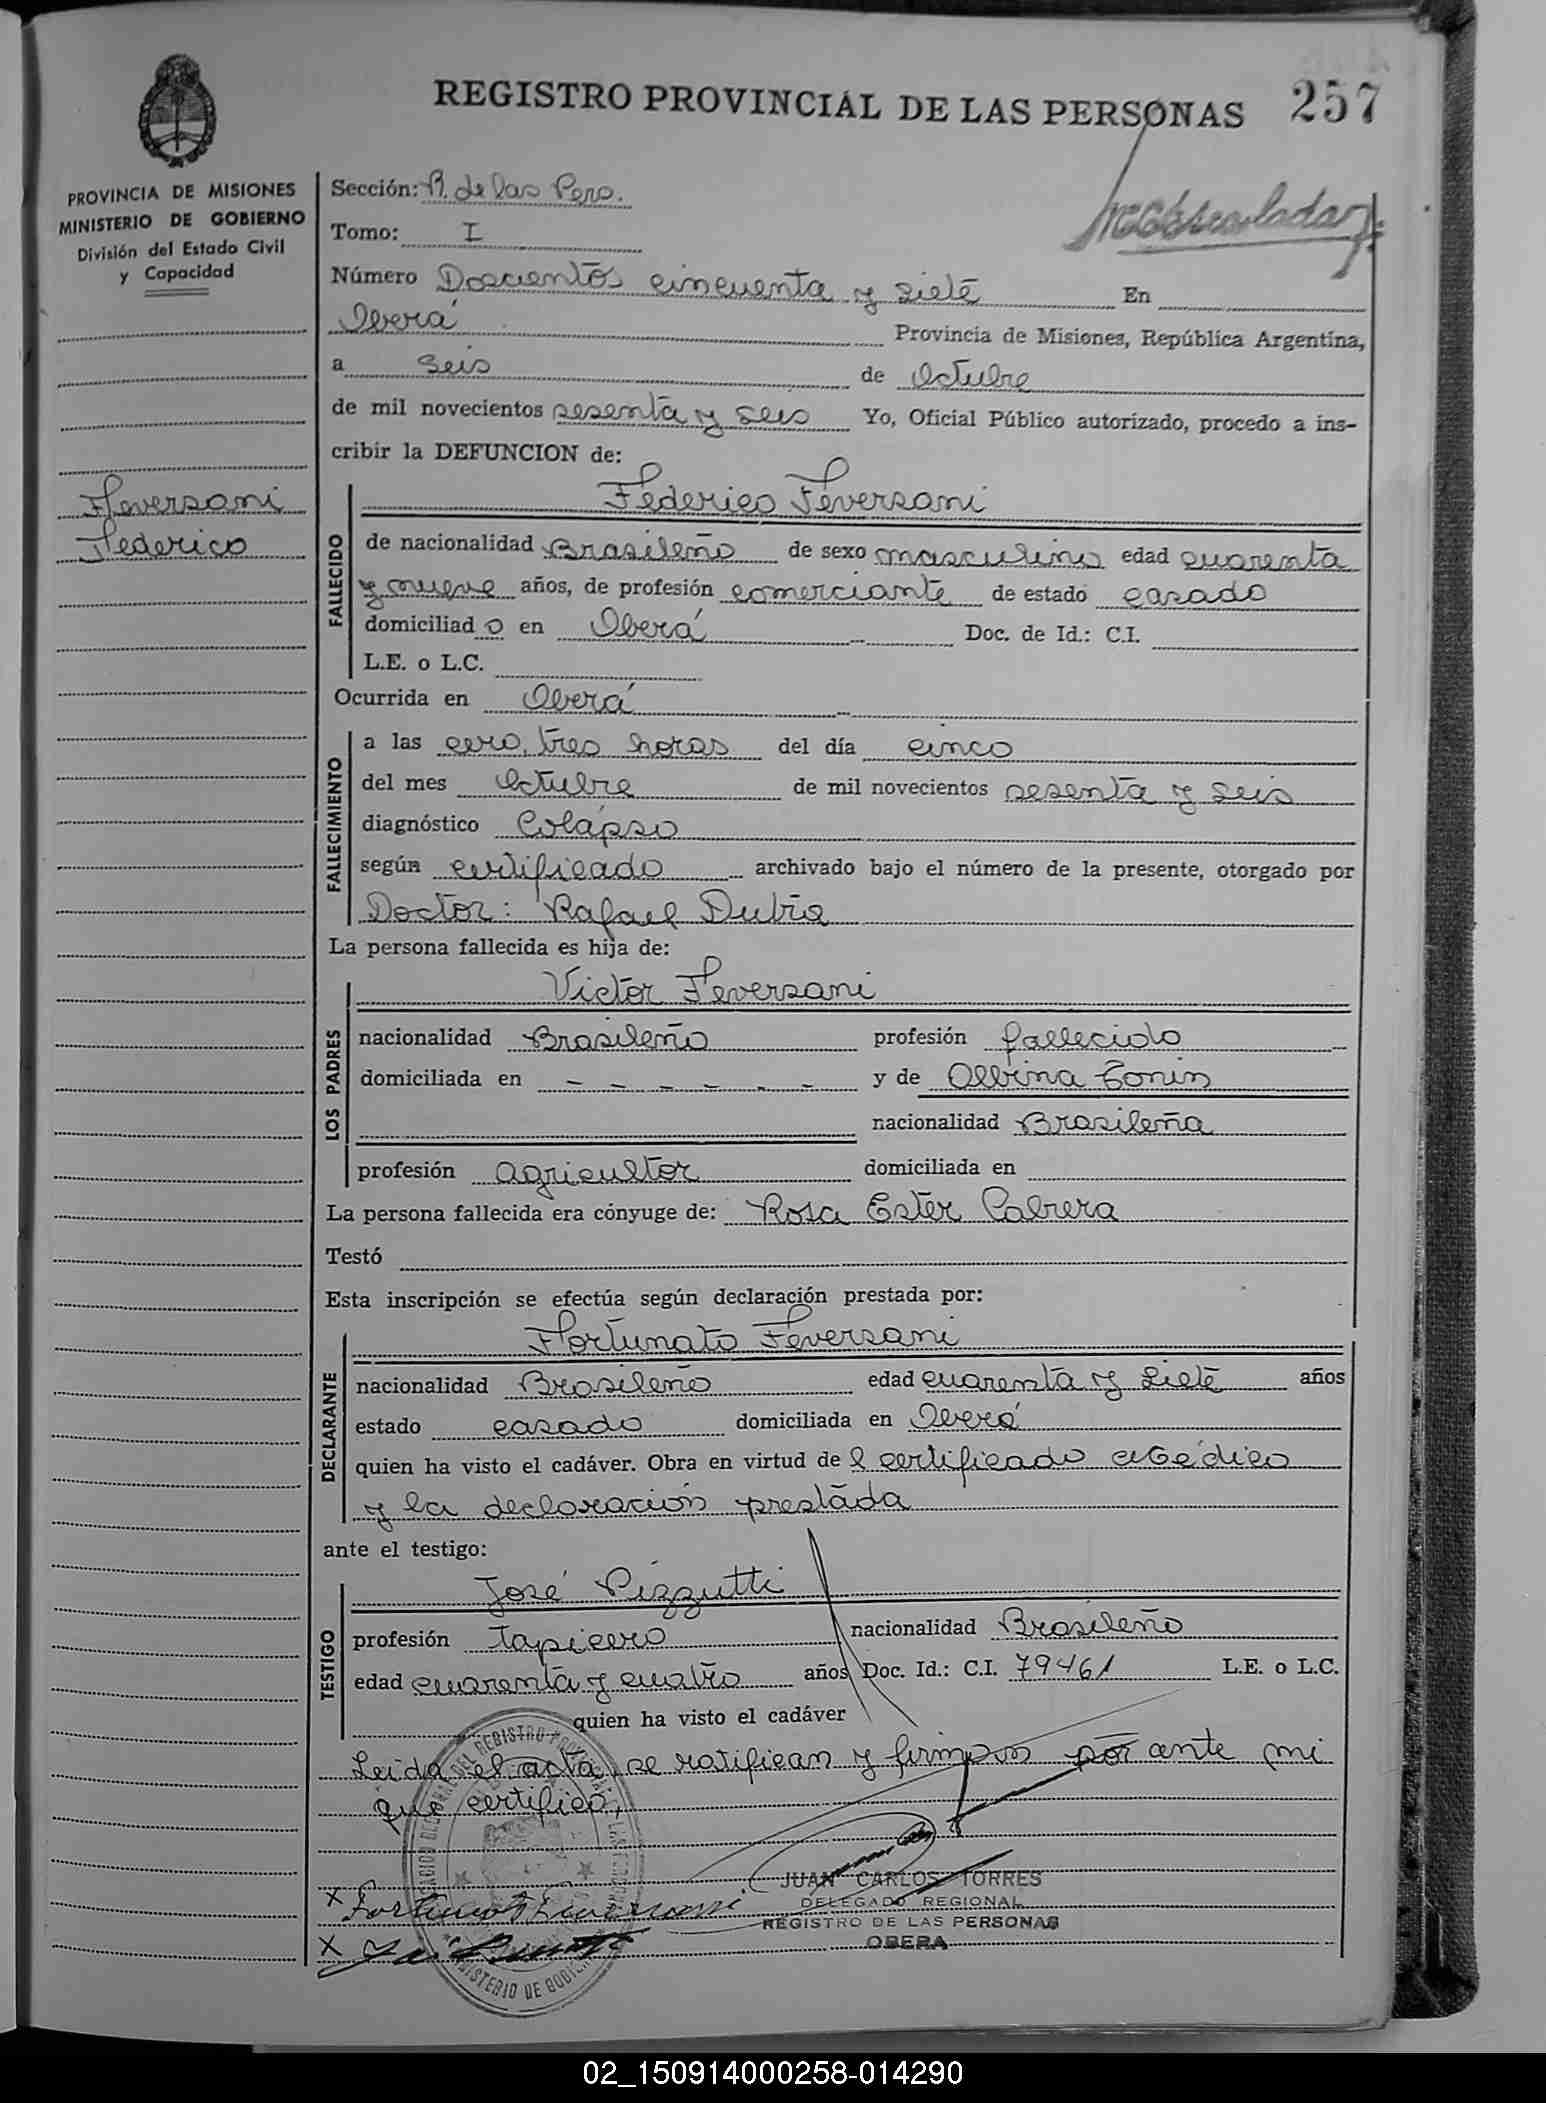 REGISTRO PROVINCIAL DE LAS PERSONAS 257
PROVINCIA DE MISIONES
MINISTERIO DE GOBIERNO
División del Estado Civil
y Capacidad
Feversani
Federico
Sección: R. de las Pers.
Tomo: I
Número Doscientos cincuenta y siete En
Oberá Provincia de Misiones, República Argentina,
a seis de Octubre
de mil novecientos sesenta y seis Yo, Oficial Público autorizado, procedo a ins-
cribir la DEFUNCION de:
Federico Feversani
FALLECIDO
de nacionalidad Brasileño de sexo masculino edad cuarenta
y nueve años, de profesión comerciante de estado casado
domiciliado en Oberá Doc. de Id.: C.I.
L.E. o L.C.
Ocurrida en Oberá
FALLECIMIENTO
a las cero, tres horas del día cinco
del mes Octubre de mil novecientos sesenta y seis
diagnóstico Colápso
según certificado archivado bajo el número de la presente, otorgado por
Doctor: Rafael
La persona fallecida es hija de:
Victor Feversani
LOS PADRES
nacionalidad Brasileño profesión fallecido
domiciliada en - - - - - - y de Albina Tonin
nacionalidad Brasileña
profesión agricultor domiciliada en
La persona fallecida era cónyuge de: Rosa Ester Cabrera
Testó
Esta inscripción se efectúa según declaración prestada por:
Fortunato Feversani
DECLARANTE
nacionalidad Brasileño edad cuarenta y siete años
estado casado domiciliada en Oberá
quien ha visto el cadáver. Obra en virtud de l certificado médico
y la declaración prestada
ante el testigo:
José Pizzutti
TESTIGO
profesión tapicero nacionalidad Brasileño
edad cuarenta y cuatro años Doc. Id.: C.I. 79461 L.E. o L.C.
quien ha visto el cadáver
Leida el acta, se ratifican y firman por ante mi
que certifico,
JUAN CARLOS TORRES
DELEGADO REGIONAL
REGISTRO DE LAS PERSONAS
OBERA
X Fortunato Feversani
X
02_150914000258-014290